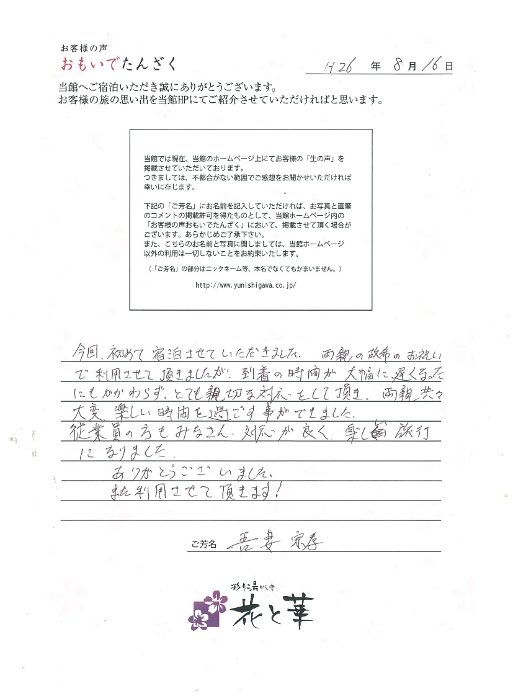 お客様の声
おもいでたんざく
H26 年 8月 16日
当館へご宿泊いただき誠にありがとうございます。
お客様の旅の思い出を当館HPにてご紹介させていただければと思います。
当館では現在、当館のホームページ上にてお客様の「生の声」を
掲載させていただいております。
つきましては、不都合がない範囲でご感想をお聞かせいただければ
幸いに存じます。
下記の「ご芳名」にお名前を記入していただければ、お写真と直筆
のコメントの掲載許可を得たものとして、当館ホームページ内の
「お客様の声おもいでたんざく」において、掲載させて頂く場合が
ございます。あらかじめご了承下さい。
また、こちらのお名前と写真に関しましては、当館ホームページ
以外の利用は一切しないことをお約束いたします。
（「ご芳名」の部分はニックネーム等、本名でなくてもかまいません。）
http://www.yunishigawa.co.jp/
今回、初めて宿泊させていただきました。両親の のお祝い
で利用させて頂きましたが、到着の時間が大幅に遅くなった
にもかかわらず、とても親切な対応をして頂き、両親共々
大変楽しい時間を過ごす事ができました。
従業員の方もみなさん、対応が良く、楽しい旅行
になりました。
ありがとうございました。
また利用させて頂きます！
ご芳名 吾妻
花と華